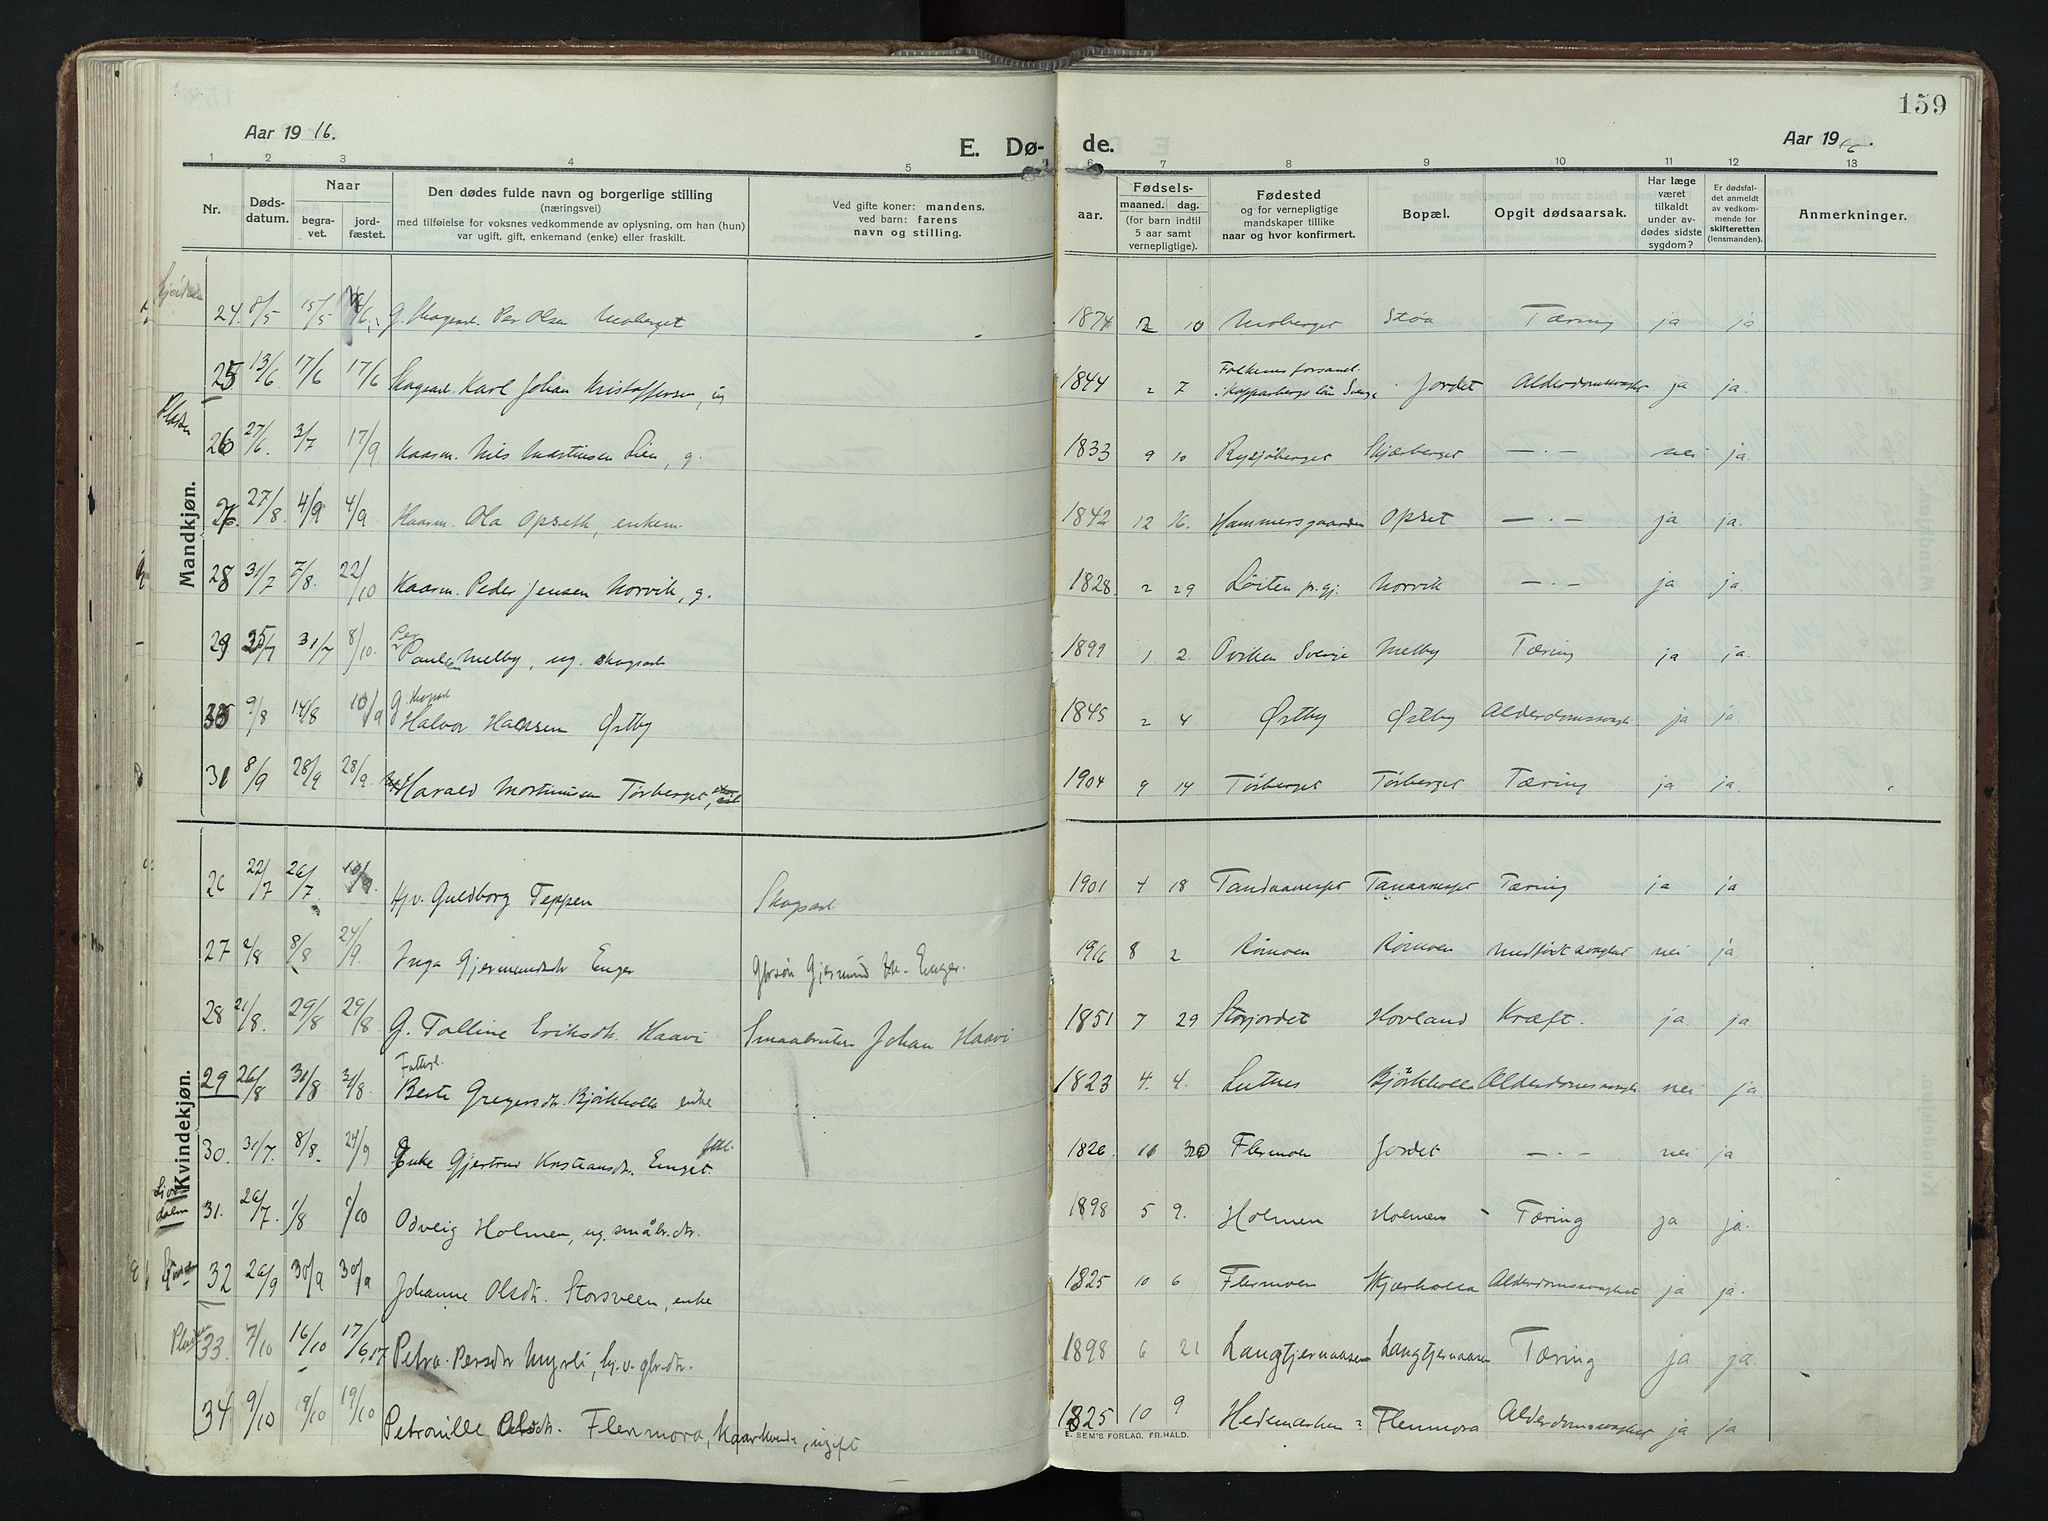 159
Aar 1916.
E. Dø-
de.
Aar 1916.
1 2 3 4 5 6 7 8 9 10 11 12 13
Nr.
Døds-
datum.
Naar
begra-
vet.
jord-
fæstet.
Den dødes fulde navn og borgerlige stilling
(næringsvei)
med tilføielse for voksnes vedkommende av oplysning, om han (hun)
var ugift, gift, enkemand (enke) eller fraskilt.
Ved gifte koner: mandens,
ved barn: farens
navn og stilling.
aar.
Fødsels-
maaned. dag.
(for barn indtil
5 aar samt
vernepligtige).
Fødested
og for vernepligtige
mandskaper tillike
naar og hvor konfirmert.
Bopæl.
Opgit dødsaarsak.
Har læge
været
tilkaldt
under av-
dødes sidste
sygdom?
Er dødsfal-
det anmeldt
av vedkom-
mende for
skifteretten
(lensmanden).
Anmerkninger.
Mandkjøn.
24. 8/5 15/5 G. Skogsarb. Per Olsen Moberget 1874 2 10 Moberget Støa Tæring ja ja
Plassen
25 13/6 17/6 17/6 Skogsarb. Karl Johan Kristoffersen, ug 1844 2 7 Kopparbergs län Sverige Jordet Alderdomssvaghet ja ja.
26 27/6 3/7 17/9 Kaarm. Nils Martinsen Lien, g. 1833 9 10 Rysjøberget Skjærberget — . — nei ja.
27. 27/8. 4/9 4/9 Kaarm. Ola Opseth, enkem. 1842 12 16. Hammersgaarden Opset — . — ja ja.
28 31/7 7/8. 22/10 Kaarm. Peder Jensen Norvik, g. 1828. 2 29 Løiten pr.gj. Norvik — . — ja ja.
29 25/7 31/7 8/10. Per Paulsen Melby, ug. skogsarb 1899 1 2. Oviken Sverige Melby Tæring ja ja.
30 9/8 14/8 10/9 G. Skogsarb Halvor Hansen Østby 1845 2 4 Østby Østby Alderdomssvagh. ja ja.
31 8/9 28/9 28/9. Harald Mortinusen Tørberget, 1904 9 14 Tørberget Tørberget Tæring ja ja.
Kvindekjøn.
26 22/7 26/7 10/9. Hj.v. Guldborg Teppen Skogsarb. 1901 4 18 Tandaaneset Tanaaneset Tæring ja ja
27 2/8 8/8 24/9. Inga Gjermundsdtr Enger Gbrsøn Gjermund M. Enger. 1916 8 2 Römoen Römoen medfødt svaghet nei ja.
28 21/8. 29/8 29/8 G. Talline Eriksdtr. Haavi Smaabruker Johan Haavi 1851 7 29 Storjordet Hovland Kræft. ja ja
29 26/8 31/8 31/8. Fattigl. Berte Gregersdtr. Bjørkholla enke 1823 4. 4. Lutnes Bjørkholla Alderdomssvagh. nei ja
30. 31/7. 8/8. 24/9 Enke Gjertrud Kristiansdtr. Enget. 1826. 10 30 Flermoen Jordet — . — nei ja
31. 26/7. 1/8 8/10 Odveig Holmen, ug. småbr.dtr. 1898 5 9. Holmen Holmen Tæring ja ja.
32 26/9 30/9 30/9 Johanne Olsdtr. Storsveen, enke 1825 10 6 Flermoen Skjærholla Alderdomssvaghet ja ja.
33. 7/10 16/10 17/6.17 Petra Persdtr Myrli, hj.v. gbr.dtr. 1898 6 21 Langtjernaasen Langtjernaasen Tæring ja ja.
34 9/10 19/10 19/10 Petronille Olsdtr. Flenmora, Kaarkvinde, ugift 1825 10 9 Hedemarken ? Flenmora Alderdomssvaghet ja ja
E. SEM'S FORLAG, FR.HALD.